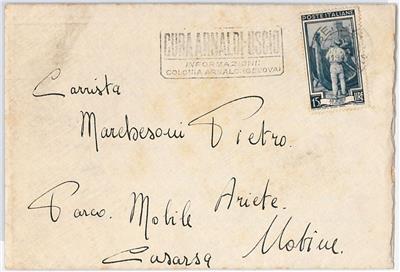 POSTE ITALIANE
CURA ARNALDI-USCIO
INFORMAZIONI:
COLONIA ARNALDI (GENOVA)
15 LIRE
Carrista
Marchesoni Pietro.
Parco Mobile Ariete.
Casarsa